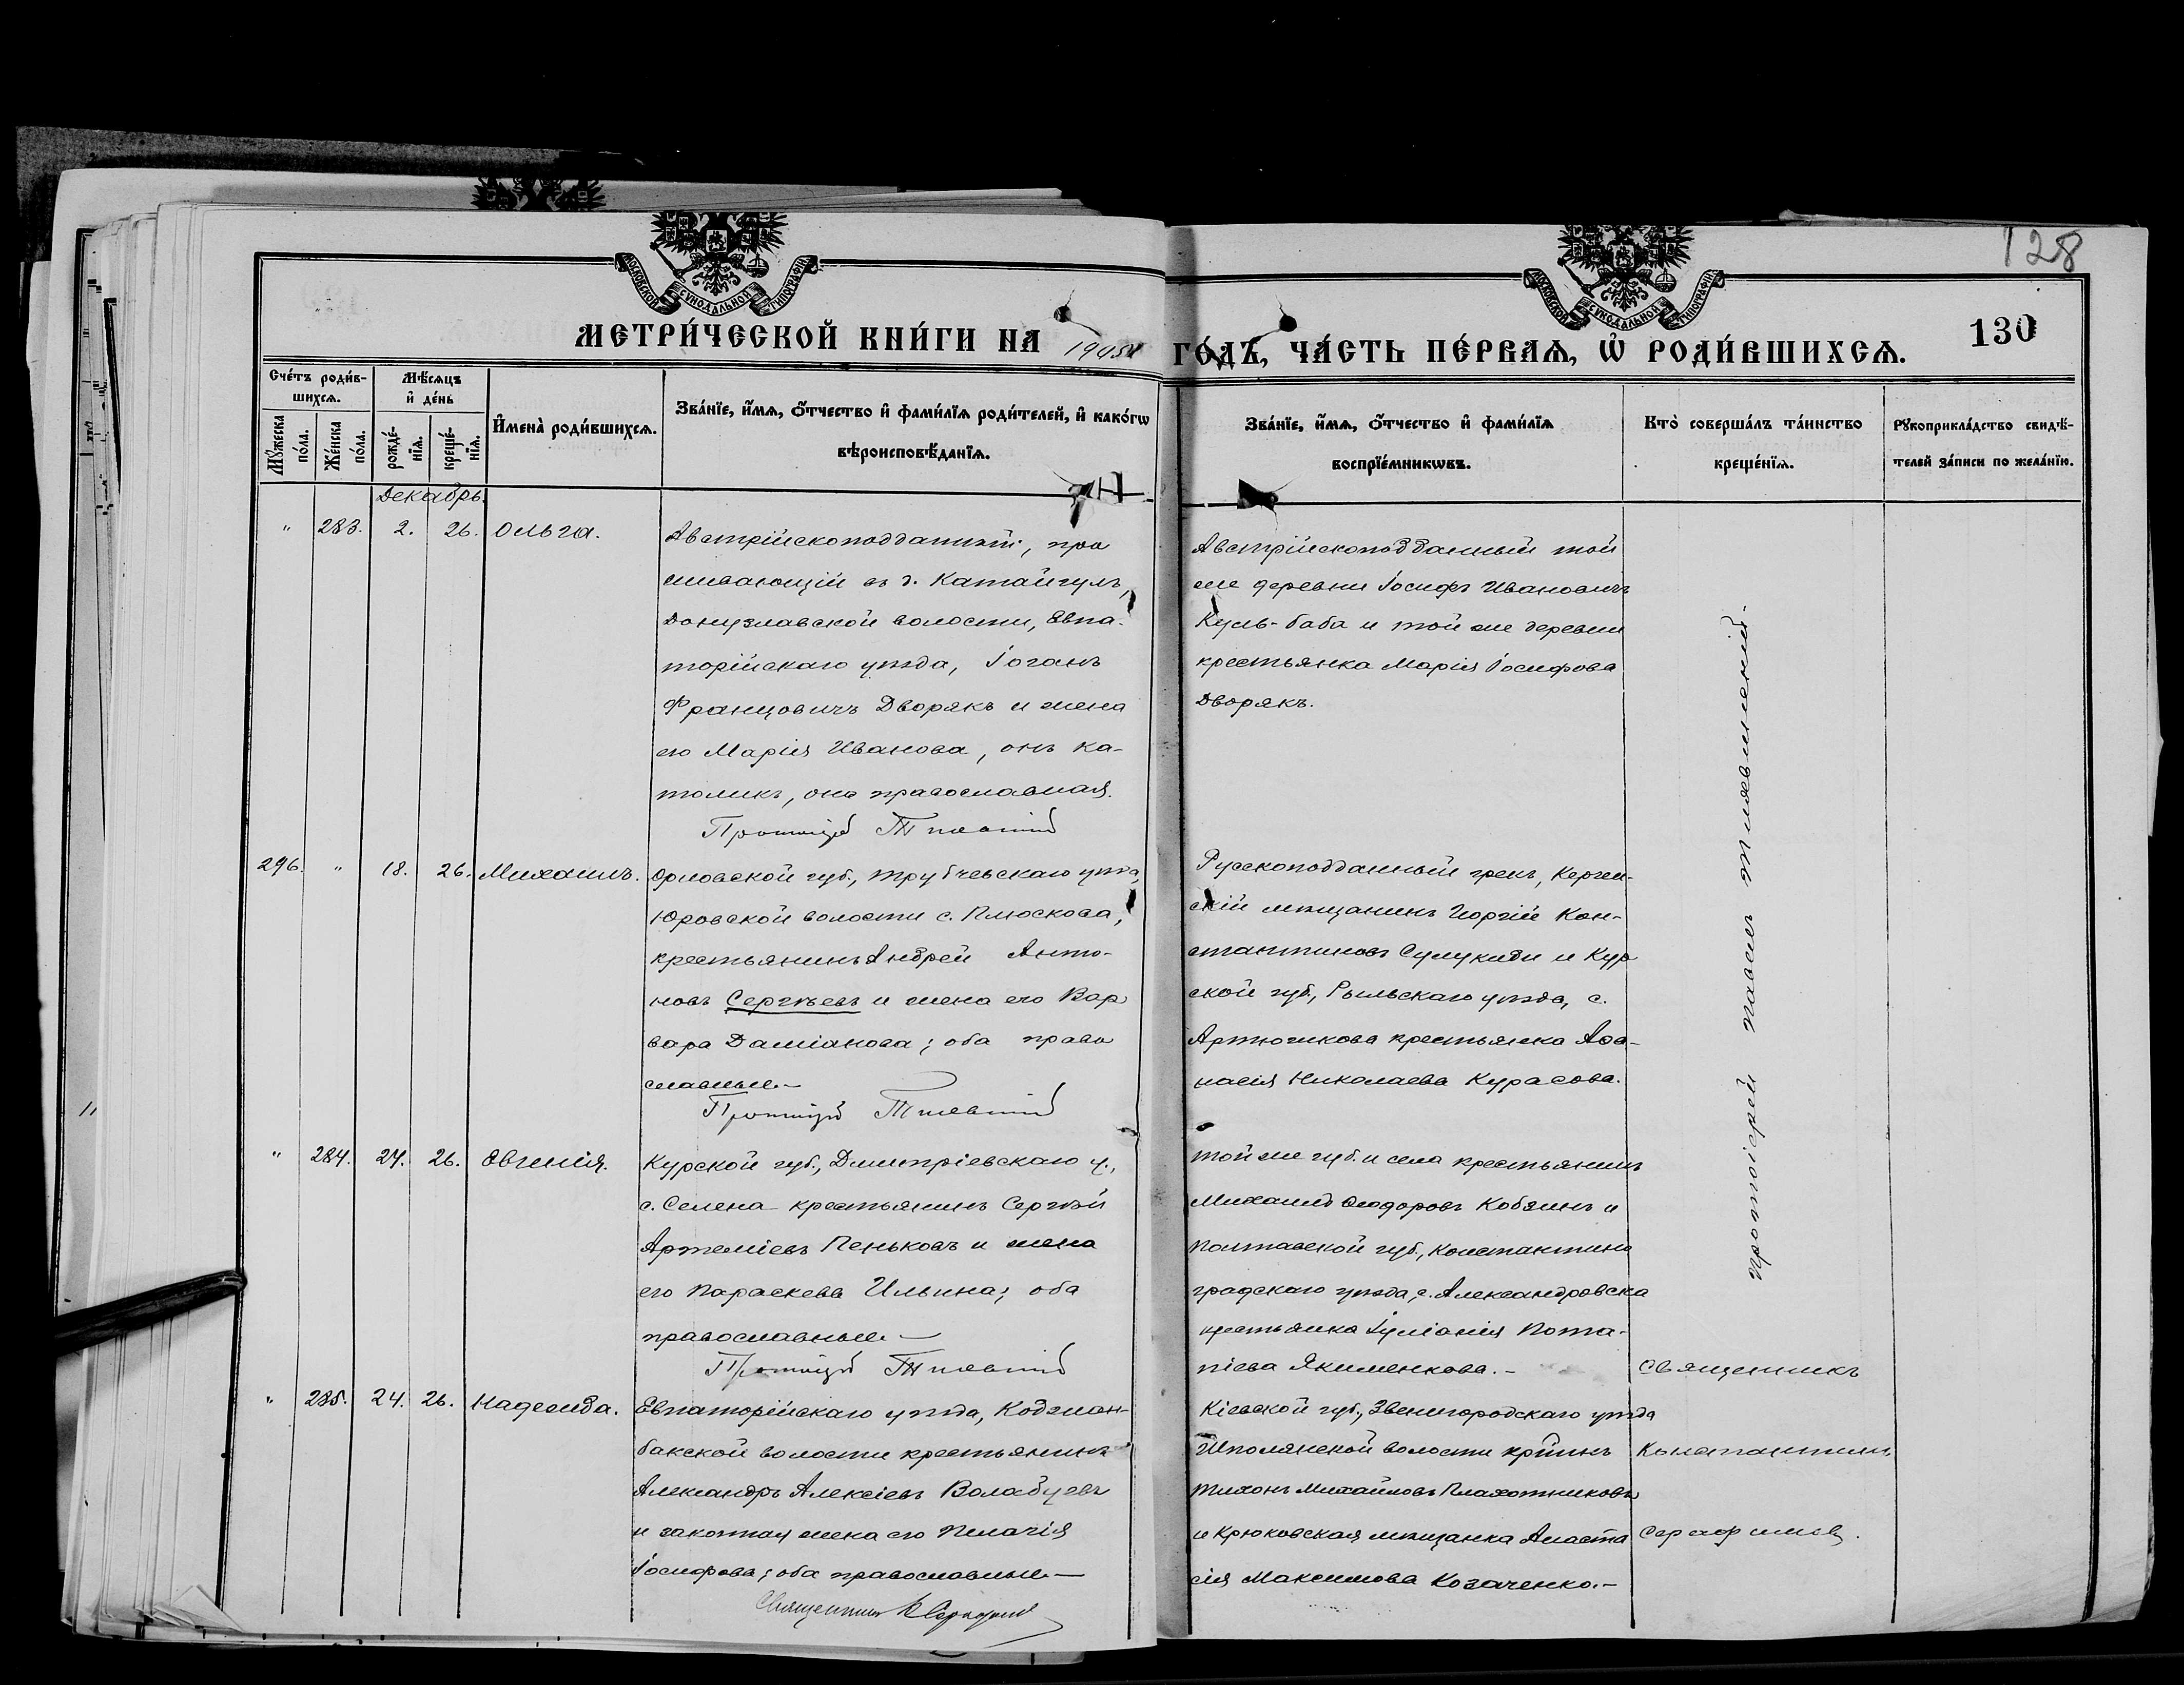 МОСКОВСКОЙ СѴНОДАЛЬНОЙ ТИПОГРАФІИ
МОСКОВСКОЙ СѴНОДАЛЬНОЙ ТИПОГРАФІИ
128
МЕТРИ́ЧЕСКОЙ КНИ́ГИ НА
ГО́ДЪ, ЧА́СТЬ ПЕ́РВАѦ, Ѡ҆ РОДИ́ВШИХСѦ.
130
Сче́тъ роди́в-
шихсѧ.
Мѣ́сѧцъ
и҆ де́нь
Мꙋ́жеска
по́ла.
Же́нска
по́ла.
рожде́-
нїѧ.
креще́-
нїѧ.
И҆мена̀ роди́вшихсѧ.
Зва́нїе, и҆́мѧ, ѻ҆́тчество и҆ фами́лїѧ роди́телей, и҆ како́гѡ
вѣроисповѣ́данїѧ.
Зва́нїе, и҆́мѧ, ѻ҆́тчество и҆ фами́лїѧ
воспрїе́мникѡвъ.
Кто̀ соверша́лъ та́инство
креще́нїѧ.
Рꙋкоприкла́дство свидѣ́-
телей за́писи по жела́нїю.
Декабрь.
" 283. 2. 26. Ольга.
Австрійскоподданный, про
живающій въ д. Катайгулъ,
Донузлавской волости, Евпа-
торійскаго уѣзда, Іоганъ
Францовичъ Дворякъ и жена
его Марія Иванова, онъ ка-
толикъ, она православная.
Протоіерей
Австрійскоподданный той
же деревни Іосифъ Ивановичъ
Куль-баба и той же деревни
крестьянка Марія Іосифова
Дворякъ.
296. " 18. 26. Михаилъ.
Орловской губ., Трубчевскаго уѣзда,
Юровской волости с. Плюскова,
крестьянинъ Андрей Анто-
новъ Сергѣевъ и жена его Вар
вара Даміанова; оба право
славные.-
Протоіерей
Русскоподданный грекъ, Керчен-
скій мѣщанинъ Георгій Кон-
стантиновъ Сумукиди и Кур
ской губ., Рыльскаго уѣзда, с.
Артюшкова крестьянка Аѳа-
насія Николаева Курасова.
" 284. 24. 26. Евгенія.
Курской губ., Дмитріевскаго у.,
с. Селена крестьянинъ Сергѣй
Артеміевъ Пеньковъ и жена
его Параскева Ильина; оба
православные.-
Протоіерей
той же губ. и села крестьянинъ
Михаилъ Ѳеодоровъ Кобзинъ и
Полтавской губ., Константино
градскаго уѣзда, с. Александровска
крестьянка Іуліанія Пота-
піева Якименкова.-
" 285. 24. 26. Надежда.
Евпаторійскаго уѣзда, Коджан-
бакской волости крестьянинъ
Александръ Алексіевъ Волабуевъ
и законная жена его Пелагія
Іосифова; оба православные.-
Священникъ К Серафимов
Кіевской губ., Звенигородскаго уѣзда
Шполянской волости кр-нинъ
Тихонъ Михайловъ Плахотниковъ
и Крюковская мѣщанка Анаста
сія Максимова Козаченко.-
протоіерей Павелъ
Священникъ
Константинъ
Серафимовъ.